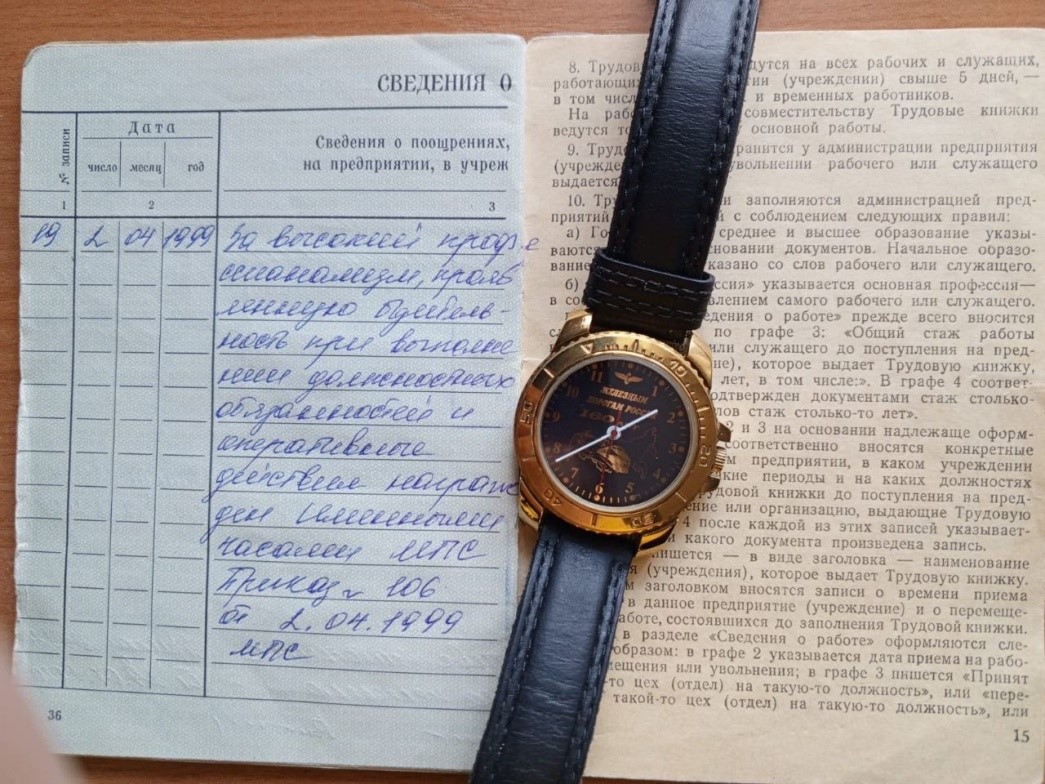 СВЕДЕНИЯ О
№ записи
Дата
число месяц год
Сведения о поощрениях,
на предприятии, в учреж
1 2 3
19 2 04 1999 За высокий профе
ссионализм, прояв
ленную бдитель-
ность при выполне
нии должностных
обязанностей и
оперативные
действия награж
ден именными
часами МПС
Приказ № 106
от 2.04.1999
МПС
36
8. Трудов дутся на всех рабочих и служащих,
работающи тии (учреждении) свыше 5 дней, —
в том числ и временных работников.
На раб совместительству Трудовые книжки
ведутся то основной работы.
9. Труд ранится у администрации предприятия
(учрежде увольнении рабочего или служащего
выдается
10. Тр и заполняются администрацией пред-
приятий с соблюдением следующих правил:
а) Го среднее и высшее образование указы-
ваются сновании документов. Начальное образо-
вание казано со слов рабочего или служащего.
б) ссия» указывается основная профессия—
в со влением самого рабочего или служащего.
едения о работе» прежде всего вносится
по графе 3: «Общий стаж работы
или служащего до поступления на пред-
ие), которое выдает Трудовую книжку,
лет, в том числе:». В графе 4 соответ-
одтвержден документами стаж столько-
лов стаж столько-то лет».
2 и 3 на основании надлежаще оформ-
соответственно вносятся конкретные
м предприятии, в каком учреждении
кие периоды и на каких должностях
рудовой книжки до поступления на пред-
ение или организацию, выдающие Трудовую
4 после каждой из этих записей указывает-
и какого документа произведена запись.
пишется — в виде заголовка — наименование
я (учреждения), которое выдает Трудовую книжку.
м заголовком вносятся записи о времени приема
в данное предприятие (учреждение) и о перемеще-
аботе, состоявшихся до заполнения Трудовой книжки.
в разделе «Сведения о работе» оформляются сле-
образом: в графе 2 указывается дата приема на рабо-
мещения или увольнения; в графе 3 пишется «Принят
-то цех (отдел) на такую-то должность», или «пере-
такой-то цех (отдел) на такую-то должность», или
15
ЖЕЛЕЗНЫМ
ДОРОГАМ РОСС
10 20 30 40 50
11 10 9 8 7 6 5 3 2